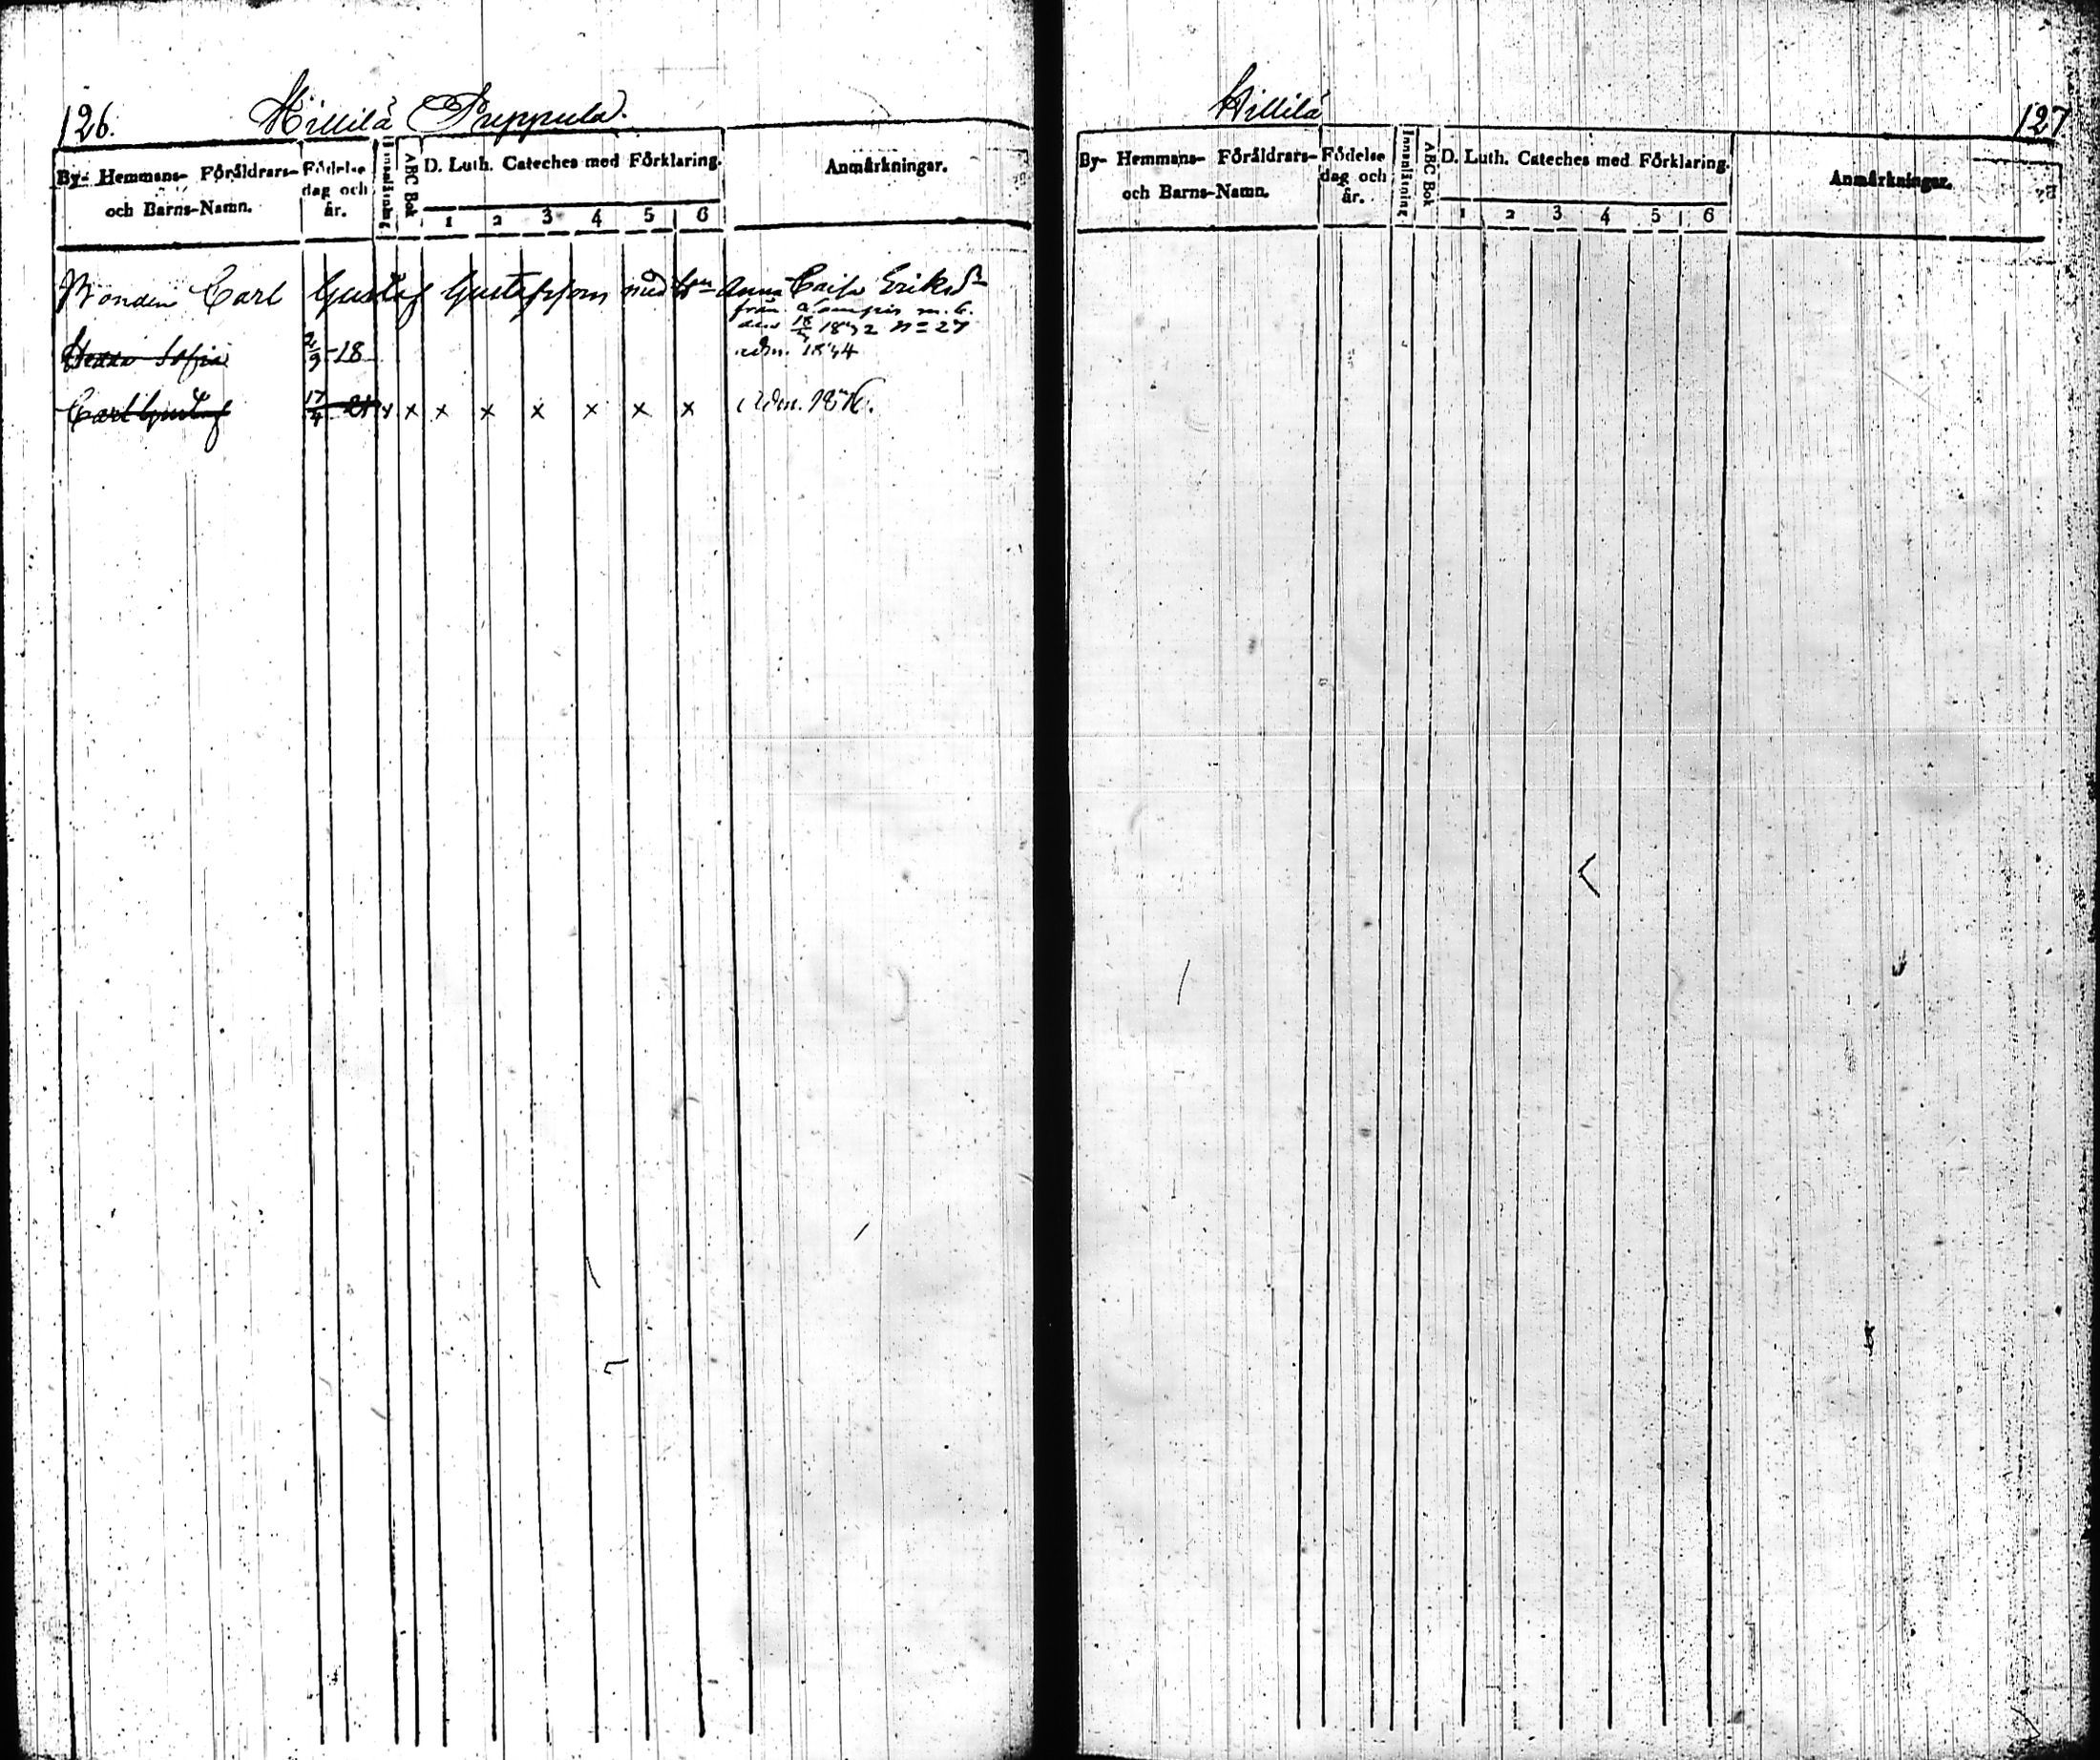 126. Killilä Preppula.
By- Hemmans- Föräldrars- och Barns-Namn. Födelse dag och år. Innanläsning ABC Bok D. Luth. Cateches med Förklaring. Anmärkningar.
1 2 3 4 5 6
Bonden Carl Gustaf Gustafsson med Anna Caisa Eriksdr
från m. b.
den 18/ N=27
Sofia 9 -18 adm.
Carl Gustaf 17/4 x x x x x x x x Adm.
Killilä 127
By- Hemmans- Föräldrars- och Barns-Namn. Födelse dag och år. Innanläsning ABC Bok D. Luth. Cateches med Förklaring. Anmärkningar.
1 2 3 4 5 6